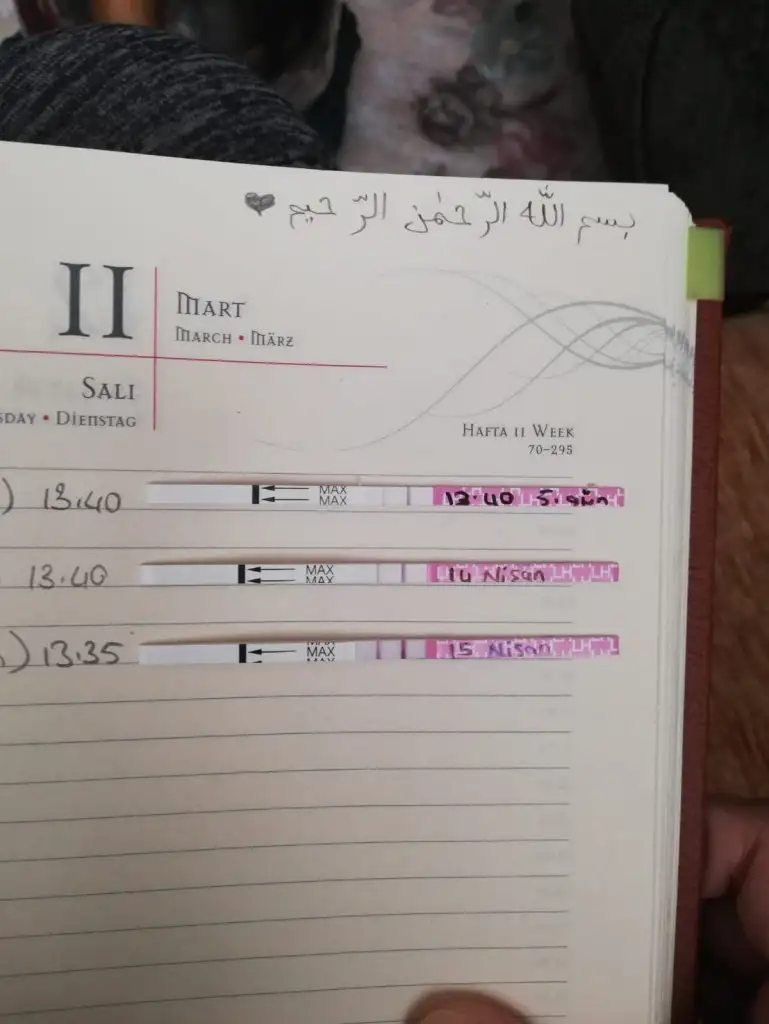 بسم الله الرّحمٰن الرّحيم
II
MART
MARCH • MÄRZ
SALI
SDAY • DIENSTAG
HAFTA 11 WEEK
70-295
) 13.40
MAX
MAX
13:40 5.gün
13.40
MAX
MAX
14 Nisan
) 13.35
MAX
MAX
MAX
15 Nisan